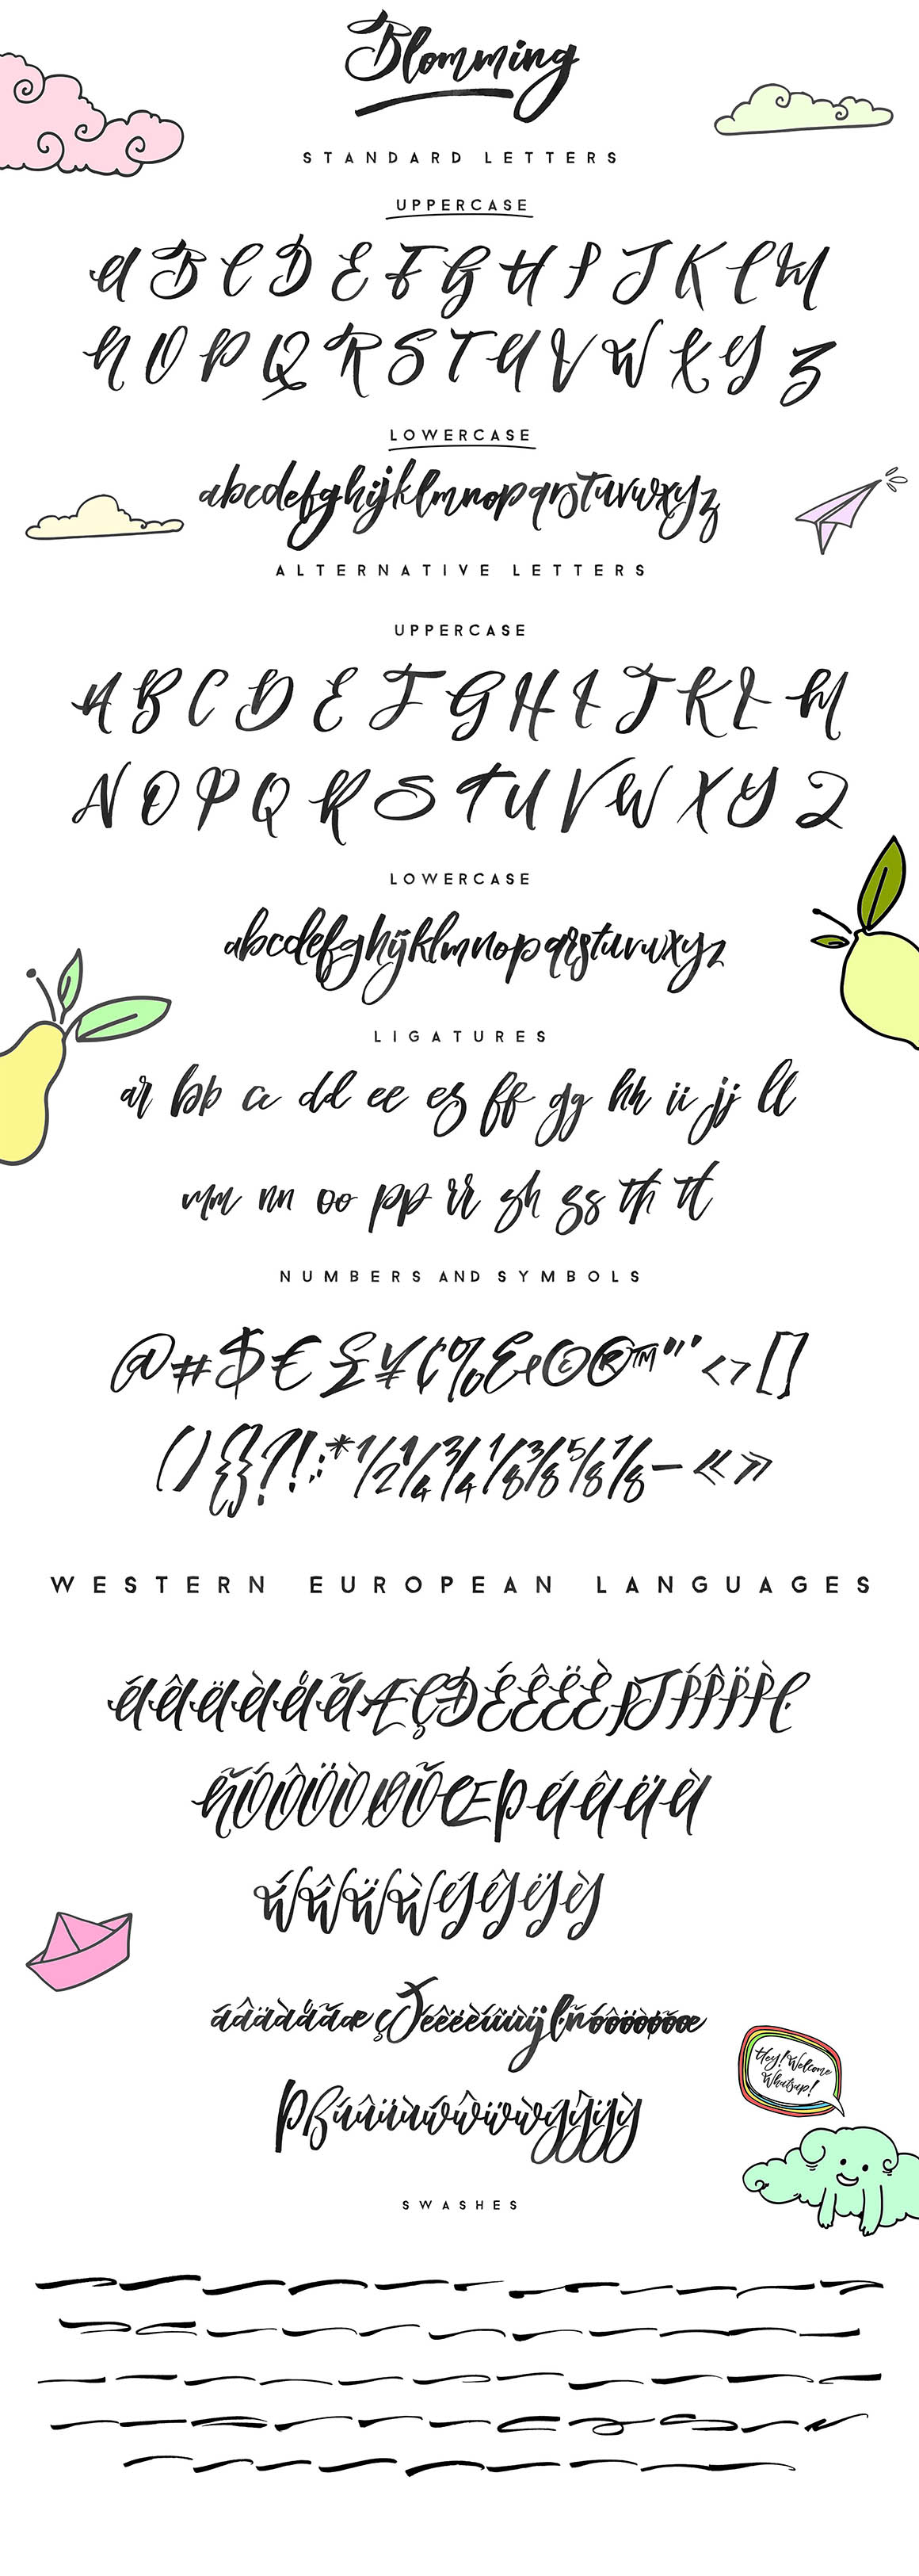 Blomming
STANDARD LETTERS
UPPERCASE
A B C D E F G H I J K L M
N O P Q R S T U V W X Y Z
LOWERCASE
abcdefghijklmnopqrstuvwxyz
ALTERNATIVE LETTERS
UPPERCASE
A B C D E F G H I J K L M
N O P Q R S T U V W X Y Z
LOWERCASE
abcdefghijklmnopqrstuvwxyz
LIGATURES
ar bb cc dd ee es ff gg hh ii jj ll
mm nn oo pp rr sh ss th tt
NUMBERS AND SYMBOLS
@#$€£¥¢%&©®™"'<>[]
(){}?!:;*½¼¾⅛⅜⅝⅞—«»
WESTERN EUROPEAN LANGUAGES
ÑÓÔÖÒØÕŒÞÚÛÜÙ
ẂŴẄẀÝŶŸỲ
þßúûüùẃŵẅẁýŷÿỳ
Hey! Welcome
Whatsup!
SWASHES